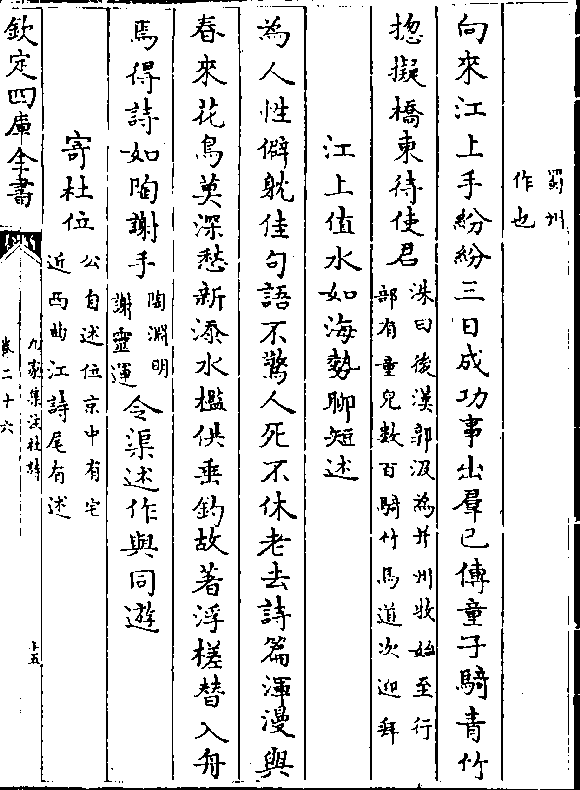 蜀州
作也
向來江上手紛紛三日成功事出羣已傳童子騎青竹
揔擬橋東待使君
洙曰後漢郭汲為并州牧始至行
部有童兒數百騎竹馬道次迎拜
江上值水如海勢聊短述
為人性僻躭佳句語不驚人死不休老去詩篇渾漫與
春來花鳥莫深愁新添水檻供垂釣故著浮槎替入舟
焉得詩如陶謝手
陶淵明
謝靈運
令渠述作與同遊
寄杜位
公自述位京中有宅
近西曲江詩尾有述
欽定四庫全書
九家集注杜詩
卷二十六
十五